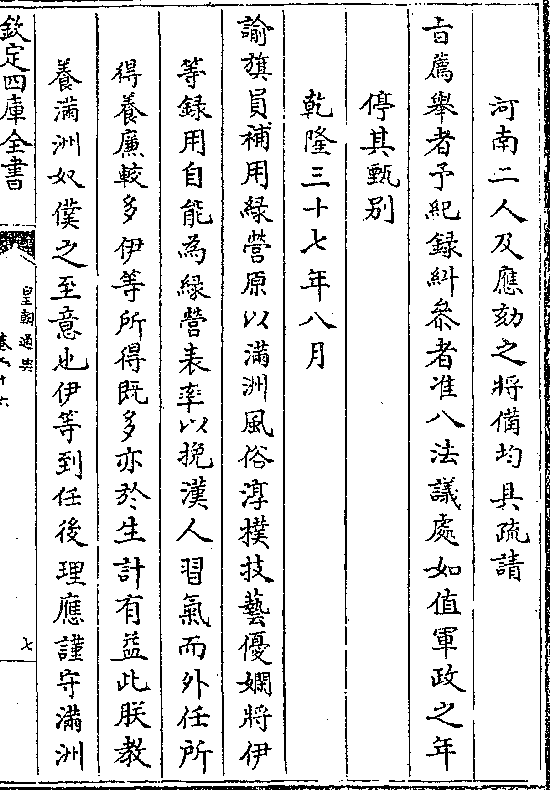 河南二人及應劾之將備均具疏請
旨薦舉者予紀録糾叅者准八法議處如值軍政之年
停其甄别
乾隆三十七年八月
諭旗員補用緑營原以滿洲風俗淳樸技藝優嫻將伊
等録用自能為緑營表率以挽漢人習氣而外任所
得養廉較多伊等所得既多亦於生計有益此朕教
養滿洲奴僕之至意也伊等到任後理應謹守滿洲
欽定四庫全書
皇朝通典
七